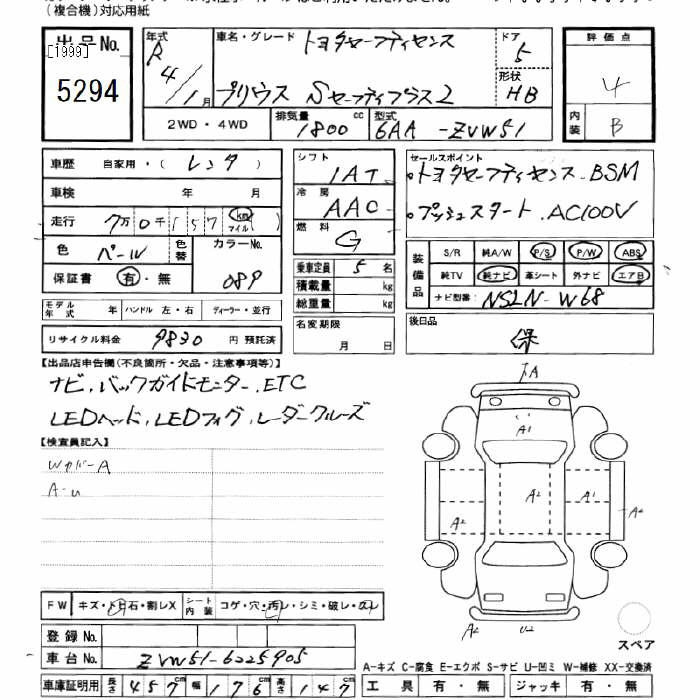 (複合機)対応用紙
出品No.
[1999]
5294
年式 R4/1月
車名・グレード トヨタセーフティセンス
プリウス Sセーフティプラス2
ドア 5
形状 HB
2WD・4WD 排気量 1800cc 型式 6AA-ZVW51
評価点 4
内装 B
車歴 自家用・(レンタ)
車検 年 月
走行 7万0千157 km マイル ( )
色 パール 色替 カラーNo. 089
保証書 有・無
モデル年式 年 ハンドル 左・右 ディーラー・並行
リサイクル料金 9830 円 預託済
シフト IAT
冷房 AAC
燃料 G
乗車定員 5 名
積載量 kg
総重量 kg
名変期限 月 日
セールスポイント
・トヨタセーフティセンス、BSM
・プッシュスタート、AC100V
装備品 S/R 純A/W P/S P/W ABS
純TV 純ナビ 革シート 外ナビ エアB
ナビ型番: NSLN-W68
後日品
保
【出品店申告欄(不良箇所・欠品・注意事項等)】
ナビ、バックガイドモニター、ETC
LEDヘッド、LEDフォグ、レーダークルーズ
【検査員記入】
WカバーA
A-U
A
A1
A2
A1
A2
A2
A2
U2
FW キズ・トビ石・割レX シート内装 コゲ・穴・汚レ・シミ・破レ・スレ
登録No.
車台No. ZVW51-6225905
車庫証明用 長さ 457cm 幅 176cm 高さ 147cm
スペア
A-キズ C-腐食 E-エクボ S-サビ U-凹ミ W-補修 XX-交換済
工具 有・無 ジャッキ 有・無